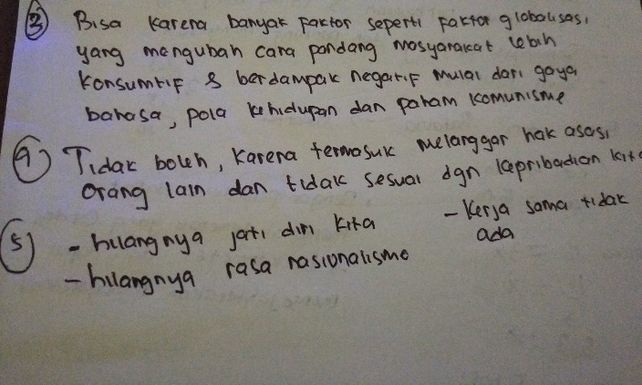 3) Bisa karena banyak faktor seperti faktor globalisasi,
yang mengubah cara pandang masyarakat lebih
konsumtif & berdampak negatif mulai dari gaya
bahasa, pola kehidupan dan paham komunisme
4) Tidak boleh, karena termasuk melanggar hak asasi
orang lain dan tidak sesuai dgn kepribadian kita
5) - hilangnya jati diri kita
- hilangnya rasa nasionalisme
- Kerja sama tidak
ada